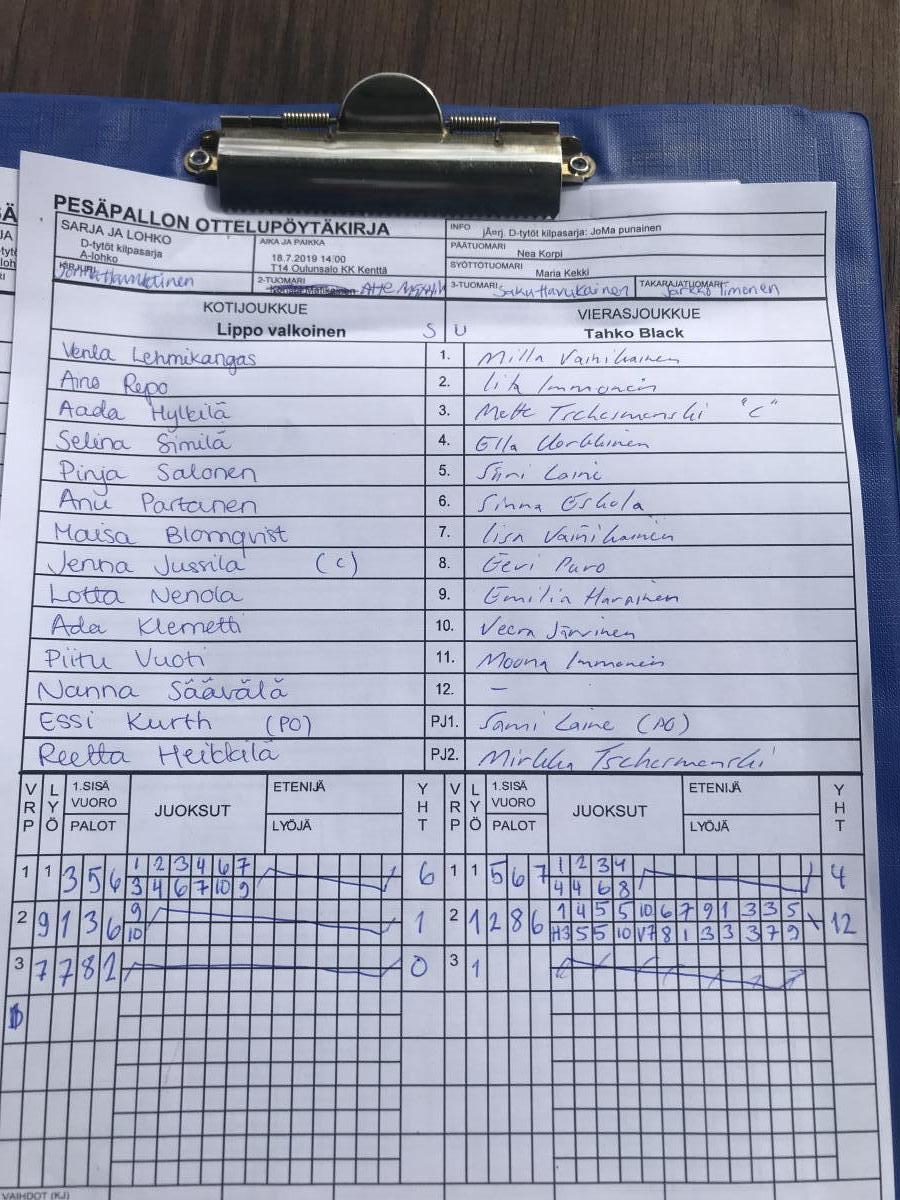 PESÄPALLON OTTELUPÖYTÄKIRJA
SARJA JA LOHKO
D-tytöt kilpasarja
A-lohko
AIKA JA PAIKKA
18.7.2019 14:00
T14 Oulunsalo KK Kenttä
INFO
D-tytöt kilpasarja: JoMa punainen
PÄÄTUOMARI
Nea Korpi
SYÖTTÖTUOMARI
Maria Kekki
KIRJURI
2-TUOMARI
3-TUOMARI Saku Havukainen
TAKARAJATUOMARI Jarkko Timonen
KOTIJOUKKUE
Lippo valkoinen S U
VIERASJOUKKUE
Tahko Black
Venla Lehmikangas 1. Milla Vainikainen
Aino Repo 2. Iita Immonen
Aada Hylkilä 3. Mette Tschernanski "C"
Selina Similä 4. Ella
Pinja Salonen 5. Siiri Laine
Anu Partanen 6. Sinna Eskola
Maisa Blomqvist 7. Iisa Vainikainen
Jenna Jussila (C) 8. Eevi Puro
Lotta Nenola 9. Emilia
Ada Klemetti 10. Veera Järvinen
Piitu Vuoti 11. Moona Immonen
Nanna Säävälä 12. –
Essi Kurth (PO) PJ1. Sami Laine
Reetta Heikkilä PJ2. Mirkka Tschernanski
VRP LYÖ 1.SISÄ VUORO PALOT JUOKSUT ETENIJÄ LYÖJÄ YHT VRP LYÖ 1.SISÄ VUORO PALOT JUOKSUT ETENIJÄ LYÖJÄ YHT
1 1 3 5 6 1 2 3 4 6 7 6 1 1 5 6 7 1 2 3 4 4
3 4 6 7 10 9 4 4 6 8
2 9 1 3 6 9 1 2 1 2 8 6 1 4 5 5 10 6 7 9 1 3 3 5 12
10 H3 5 5 10 V7 8 1 3 3 3 7 9
3 7 7 8 1 0 3 1
VAIHDOT (KJ)